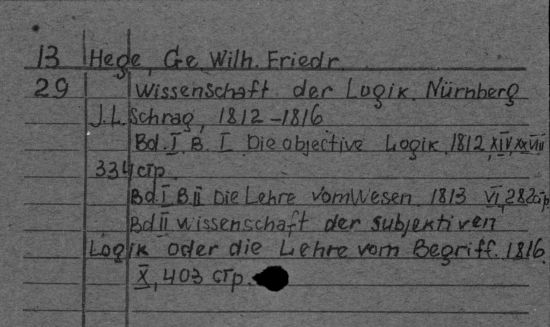 13 Hege, Ge Wilh. Friedr.
29 Wissenschaft der Logik. Nürnberg
J.L. Schrag, 1812-1816
Bd. I. B. I Die objective Logik. 1812, XIV, XXVIII
334 стр.
Bd. I B. II Die Lehre vom Wesen. 1813 VI, 282 стр
Bd II Wissenschaft der subjektiven
Logik oder die Lehre vom Begriff. 1816.
X, 403 стр.